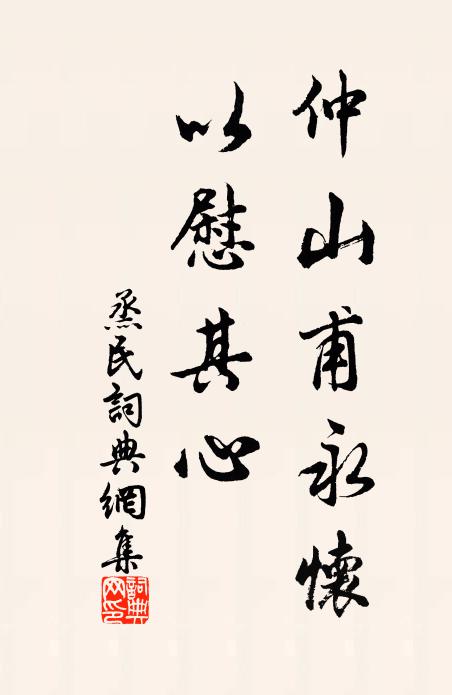 仲山甫永懷
以慰其心
烝民詞典網集
詞典
网印